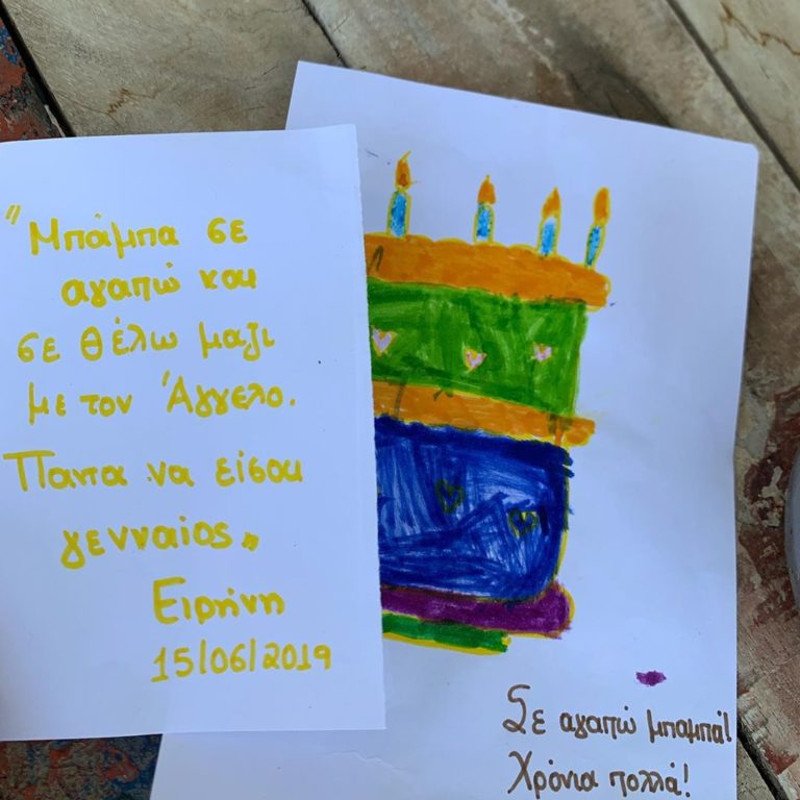 "Μπάμπα σε
αγαπώ και
σε θέλω μαζι
με τον Άγγελο.
Παντα να είσαι
γενναίος.
Ειρήνη
15/06/2019
Σε αγαπώ μπαμπά!
Χρόνια πολλά!